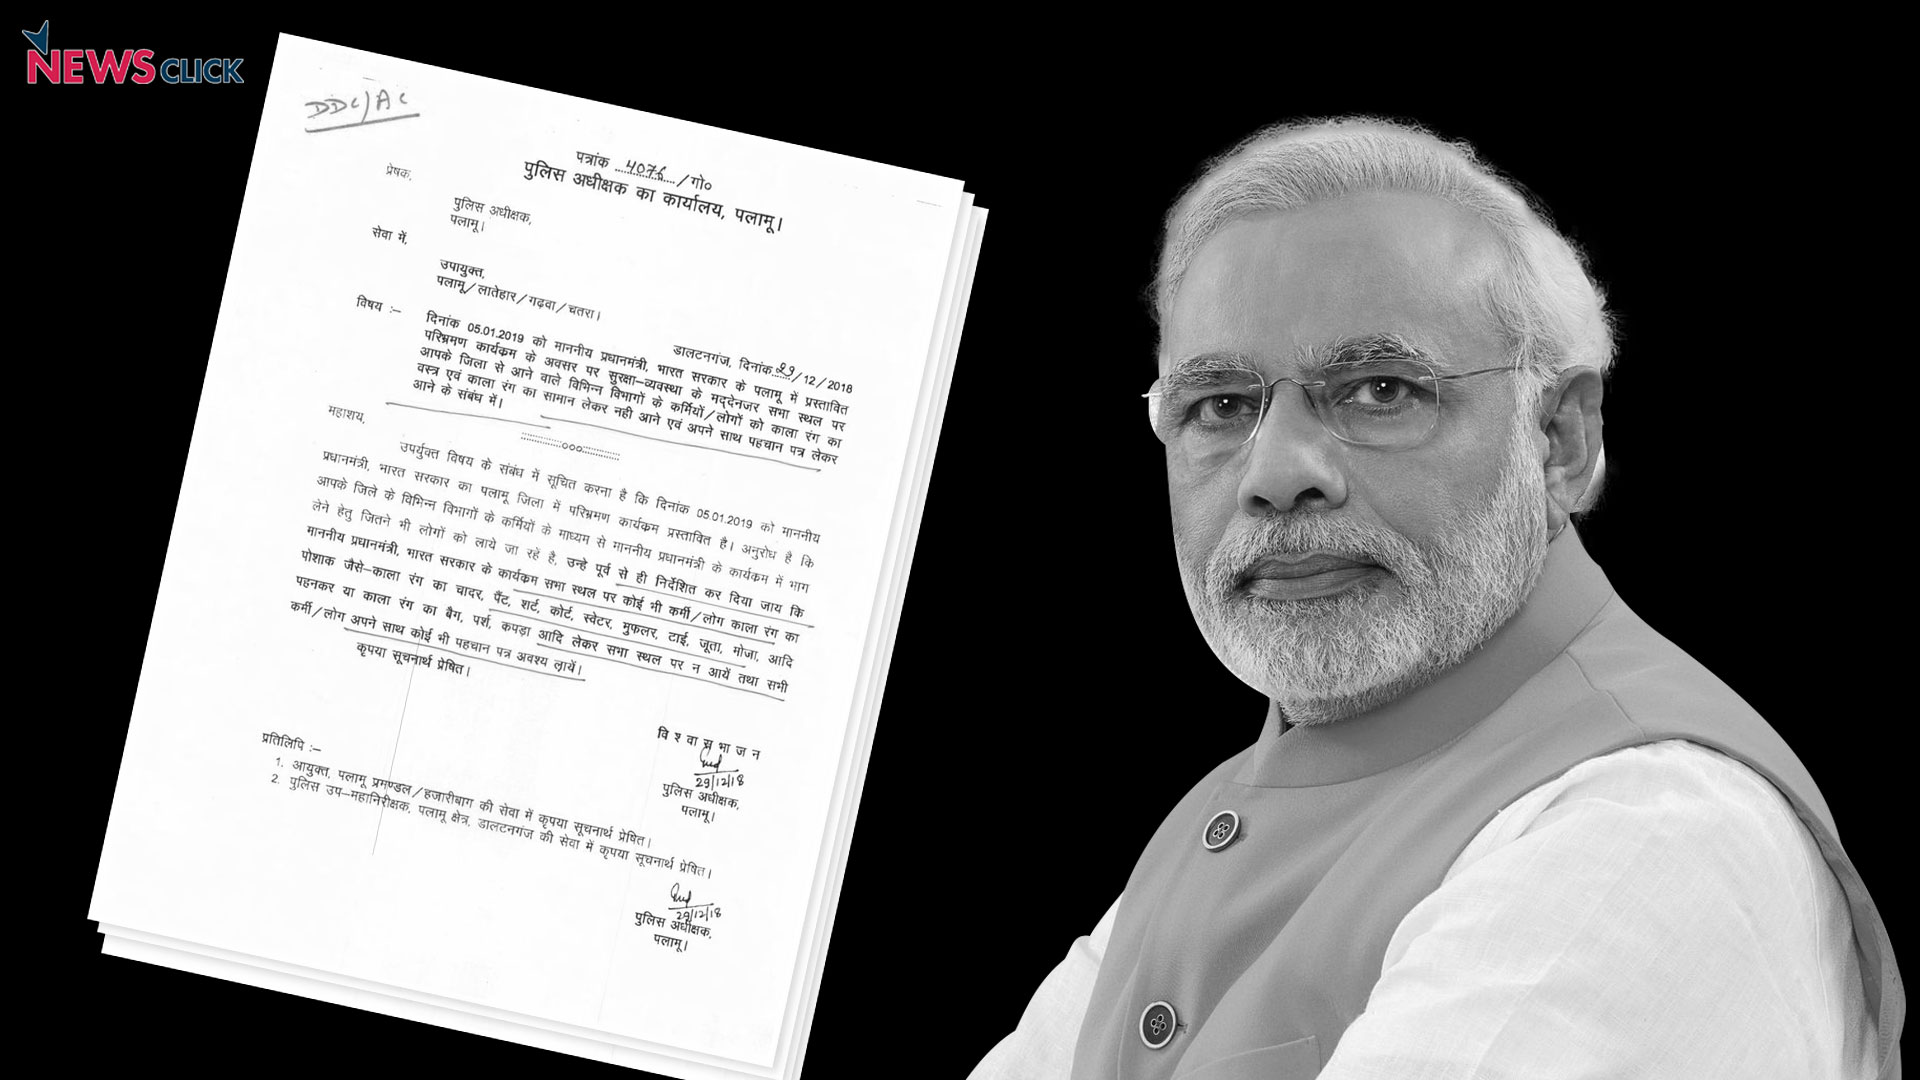 NEWSCLICK
DDC/AC
पत्रांक 4076/गो०
पुलिस अधीक्षक का कार्यालय, पलामू।
प्रेषक,
पुलिस अधीक्षक,
पलामू।
सेवा में,
उपायुक्त,
पलामू/लातेहार/गढ़वा/चतरा।
डालटनगंज, दिनांक 29/12/2018
विषय :- दिनांक 05.01.2019 को माननीय प्रधानमंत्री, भारत सरकार के पलामू में प्रस्तावित
परिभ्रमण कार्यक्रम के अवसर पर सुरक्षा-व्यवस्था के मद्देनजर सभा स्थल पर
आपके जिला से आने वाले विभिन्न विभागों के कर्मियों/लोगों को काला रंग का
वस्त्र एवं काला रंग का सामान लेकर नही आने एवं अपने साथ पहचान पत्र लेकर
आने के संबंध में।
महाशय,
उपर्युक्त विषय के संबंध में सूचित करना है कि दिनांक 05.01.2019 को माननीय
प्रधानमंत्री, भारत सरकार का पलामू जिला में परिभ्रमण कार्यक्रम प्रस्तावित है। अनुरोध है कि
आपके जिले के विभिन्न विभागों के कर्मियों के माध्यम से माननीय प्रधानमंत्री के कार्यक्रम में भाग
लेने हेतु जितने भी लोगों को लाये जा रहें है, उन्हे पूर्व से ही निर्देशित कर दिया जाय कि
माननीय प्रधानमंत्री, भारत सरकार के कार्यक्रम सभा स्थल पर कोई भी कर्मी/लोग काला रंग का
पोशाक जैसे-काला रंग का चादर, पैंट, शर्ट, कोर्ट, स्वेटर, मुफलर, टाई, जूता, मोजा, आदि
पहनकर या काला रंग का बैग, पर्श, कपड़ा आदि लेकर सभा स्थल पर न आयें तथा सभी
कर्मी/लोग अपने साथ कोई भी पहचान पत्र अवश्य लायें।
कृपया सूचनार्थ प्रेषित।
विश्वासभाजन
29/12/18
पुलिस अधीक्षक,
पलामू।
प्रतिलिपि :-
1. आयुक्त, पलामू प्रमण्डल/हजारीबाग की सेवा में कृपया सूचनार्थ प्रेषित।
2. पुलिस उप-महानिरीक्षक, पलामू क्षेत्र, डालटनगंज की सेवा में कृपया सूचनार्थ प्रेषित।
29/12/18
पुलिस अधीक्षक,
पलामू।